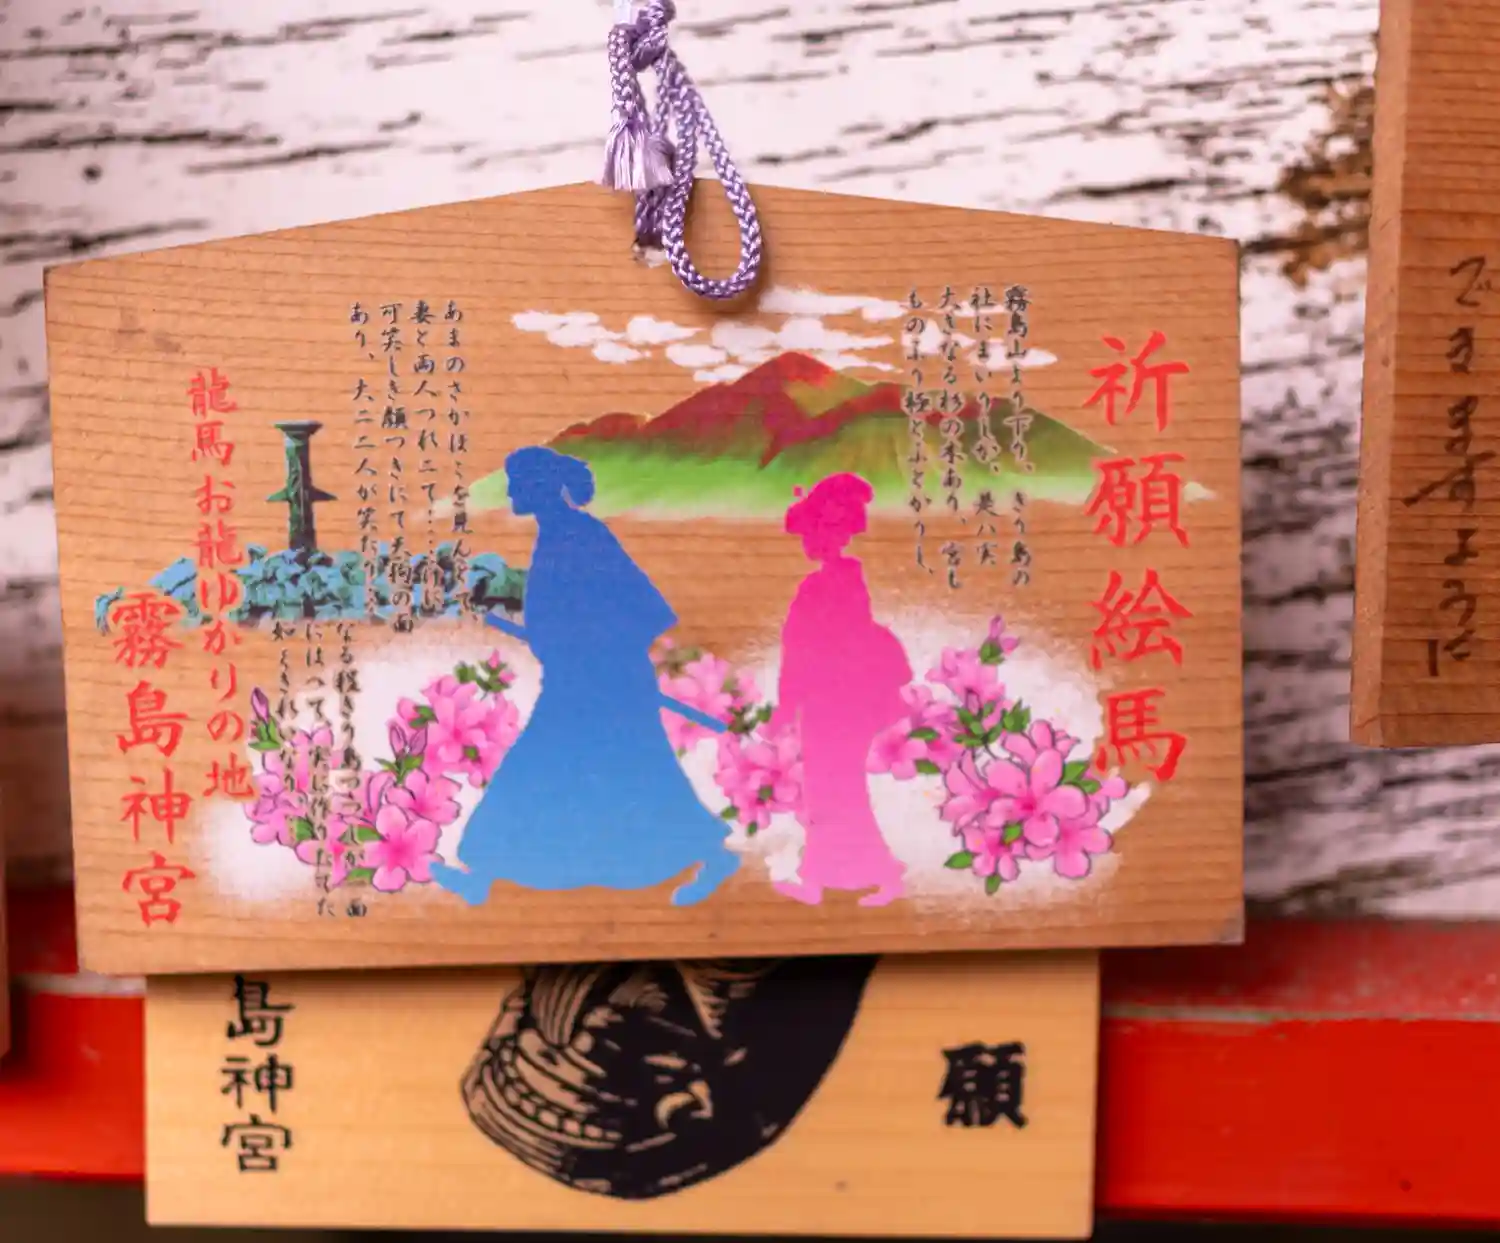 祈願絵馬
霧島山より下り、きり島の
社にまいりしが、是ハ実
大きなる杉の木あり、宮も
ものふり極とふとかりし、
あまのさかほこを見んとて、
妻と両人づれニて
可笑しき顔つきにて天狗の面
あり、大ニ二人が笑たり
なる程きり島つつじが一面
にはへて、実に作りたてた
如くきれいなり
龍馬お龍ゆかりの地
霧島神宮
願
島神宮
できますように